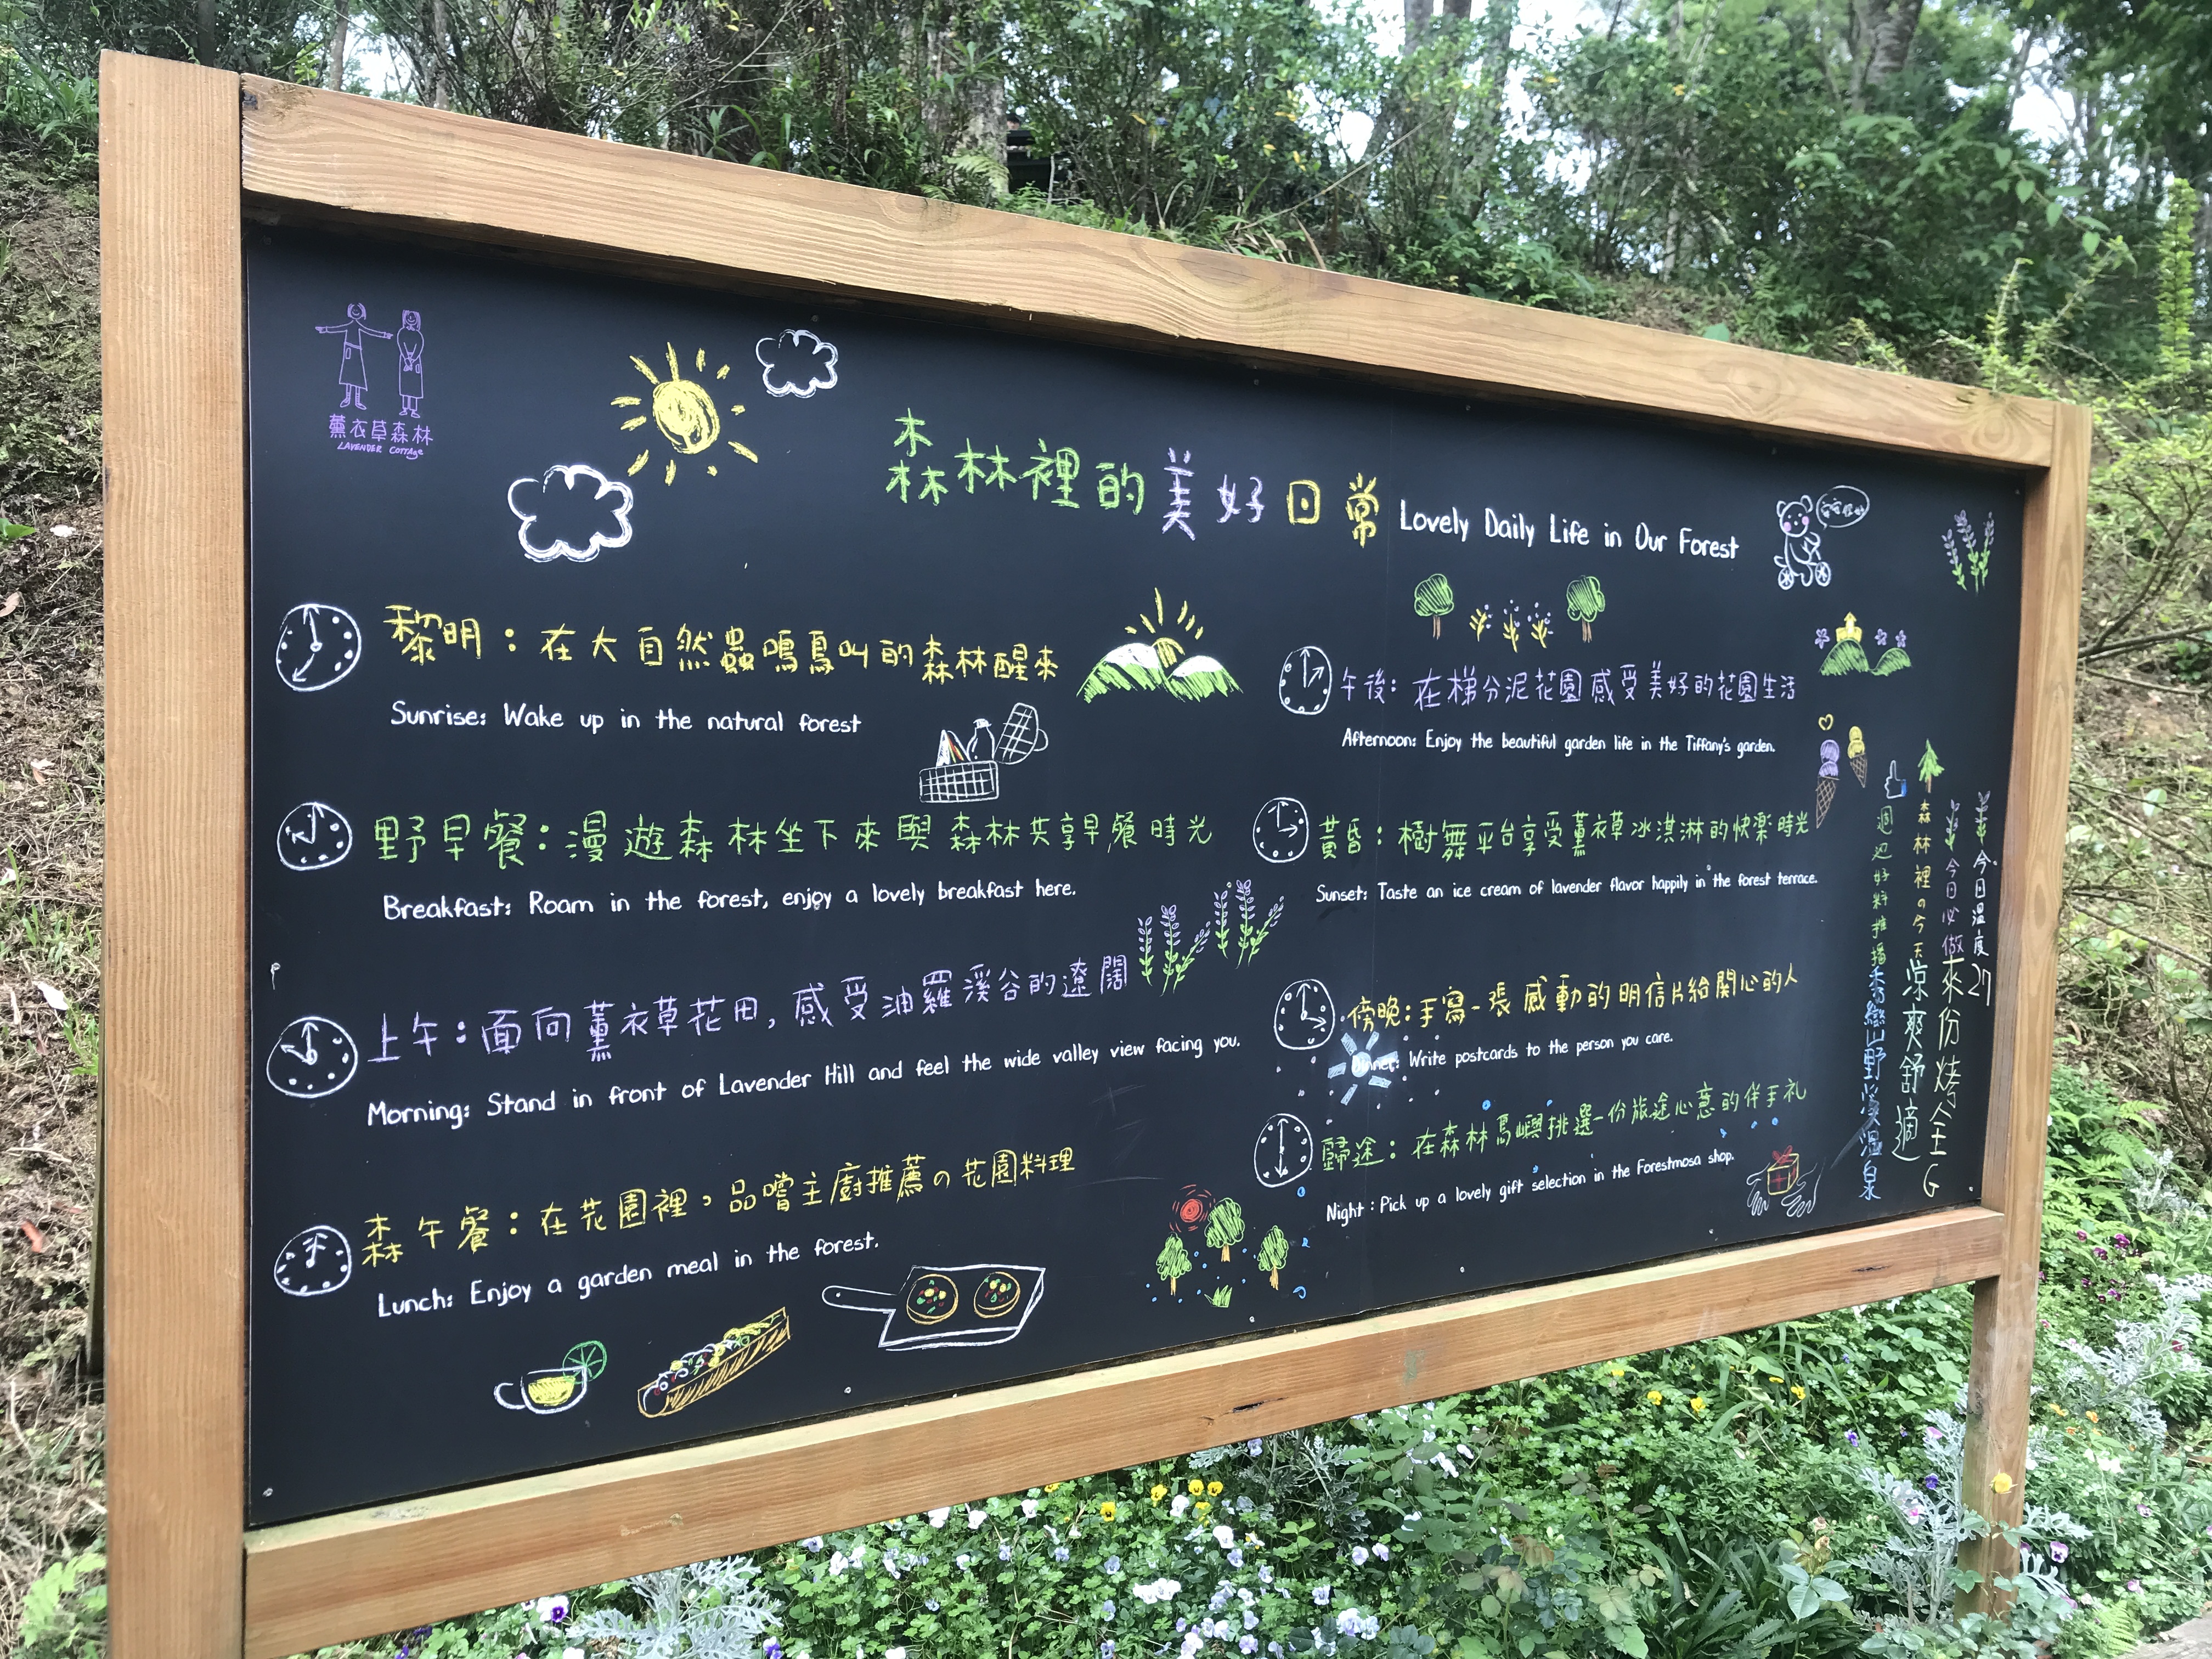 薰衣草森林
LAVENDER COTTAGE
森林裡的美好日常 Lovely Daily Life in Our Forest
黎明：在大自然蟲鳴鳥叫的森林醒來
Sunrise: Wake up in the natural forest
野早餐：漫遊森林坐下來與森林共享早餐時光
Breakfast: Roam in the forest, enjoy a lovely breakfast here.
上午：面向薰衣草花田，感受油羅溪谷的遼闊
Morning: Stand in front of Lavender Hill and feel the wide valley view facing you.
森午餐：在花園裡，品嚐主廚推薦の花園料理
Lunch: Enjoy a garden meal in the forest.
午後：在梯分泥花園感受美好的花園生活
Afternoon: Enjoy the beautiful garden life in the Tiffany's garden.
黃昏：樹舞平台享受薰衣草冰淇淋的快樂時光
Sunset: Taste an ice cream of lavender flavor happily in the forest terrace.
傍晚：手寫一張感動的明信片給關心的人
Write postcards to the person you care.
歸途：在森林島嶼挑選一份旅途心意的伴手礼
Night: Pick up a lovely gift selection in the Forestmosa shop.
今日溫度 27
今日必做 來份烤全G
森林裡の今天 涼爽舒適
週邊好料推播 秀巒山野溪溫泉